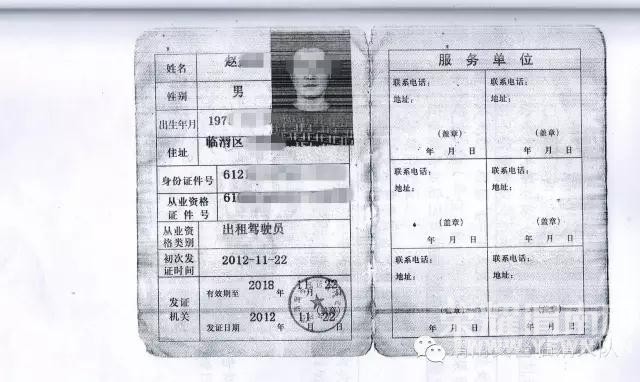 姓名 赵
性别 男
出生年月 197
住址 临渭区
身份证件号 612
从业资格证件号 61
从业资格类别 出租驾驶员
初次发证时间 2012-11-22
发证机关
有效期至 2018年 11月 22
发证日期 2012年 11月 22
(盖章)
服务单位
联系电话: 联系电话:
地址: 地址:
(盖章) (盖章)
年 月 日 年 月 日
联系电话: 联系电话:
地址: 地址:
(盖章) (盖章)
年 月 日 年 月 日
联系电话: 联系电话:
地址: 地址:
年 月 日 年 月 日